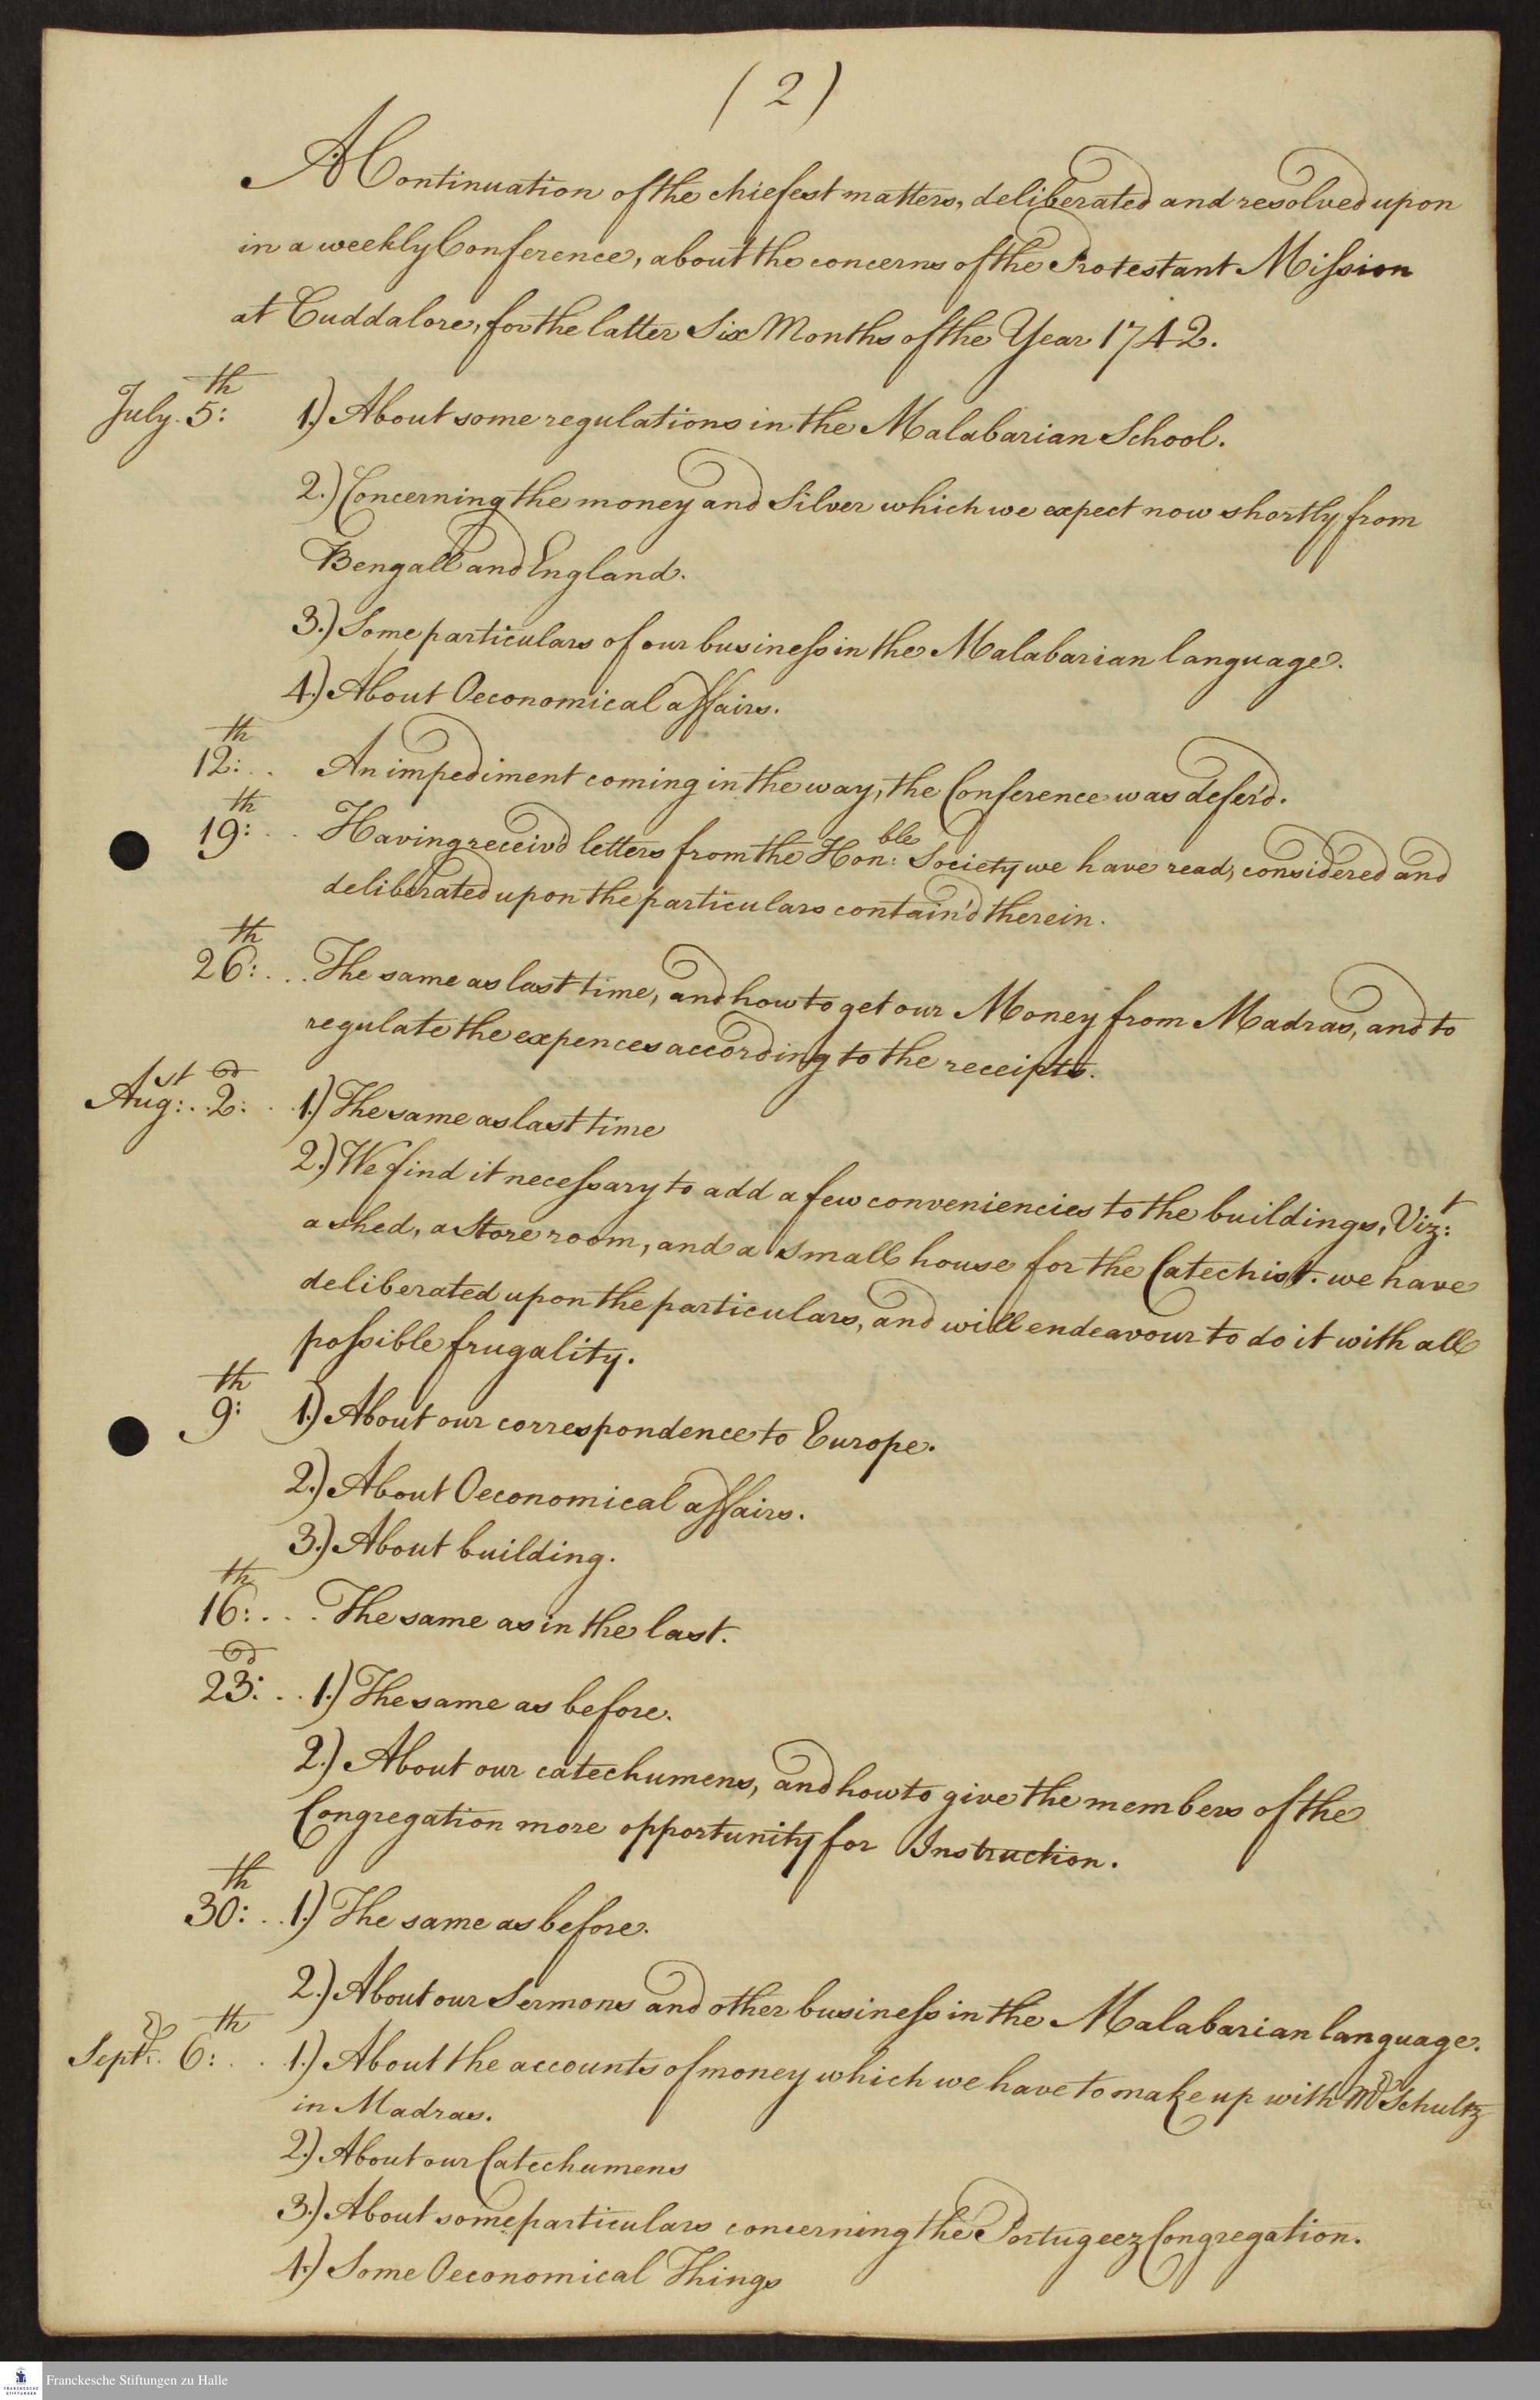 ( 2 )
A Continuation of the chiefest matters, deliberated and resolved upon
in a weekly Conference, about the concerns of the Protestant Mission
at Cuddalore, for the latter Six Months of the Year 1742.
July. 5:th 1.) About some regulations in the Malabarian School.
2.) Concerning the money and Silver which we expect now shortly from
Bengall and England.
3.) Some particulars of our business in the Malabarian language.
4.) About Oeconomical affairs.
12:th . . An impediment coming in the way, the Conference was defer'd.
19:th . . Having receiv'd letters from the Hon:ble Society we have read, considered and
deliberated upon the particulars contain'd therein.
26:th . . . The same as last time, and how to get our Money from Madras, and to
regulate the expences according to the receipts.
Aug:st . . 2:d . . 1.) The same as last time
2.) We find it necessary to add a few conveniencies to the buildings, Viz:t
a shed, a Store room, and a small house for the Catechist. we have
deliberated upon the particulars, and will endeavour to do it with all
possible frugality.
9:th 1.) About our correspondence to Europe.
2.) About Oeconomical affairs.
3.) About building.
16:th . . . The same as in the last.
23:d . . 1.) The same as before.
2.) About our catechumens, and how to give the members of the
Congregation more opportunity for Instruction.
30:th . . 1.) The same as before.
2.) About our Sermons and other business in the Malabarian language.
Sept:r. 6:th . . 1.) About the accounts of money which we have to make up with Mr Schultz
in Madras.
2.) About our Catechumens
3.) About some particulars concerning the Portugeez Congregation.
4.) Some Oeconomical Things
FRANCKESCHE
STIFTUNGEN
Franckesche Stiftungen zu Halle